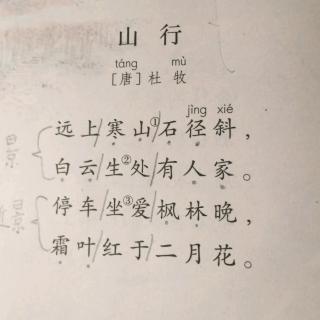 山行
táng mù
[唐]杜牧
jìng xié
远上/寒山①/石径斜，
白云/生②处/有人家。
停车/坐③爱/枫林晚，
霜叶/红于/二月花。